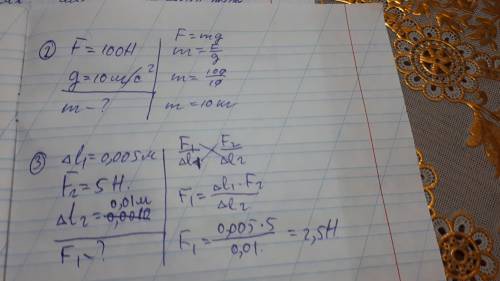 ② F = 100H
g = 10 м/с²
m - ?
F = mg
m = F/g
m = 100/10
m = 10 кг
③ Δl₁ = 0,005 м
F₂ = 5 H.
Δl₂ = 0,01 м
F₁ - ?
F₁/Δl₁ F₂/Δl₂
F₁ = Δl₁ · F₂/Δl₂
F₁ = 0,005 · 5/0,01. = 2,5H